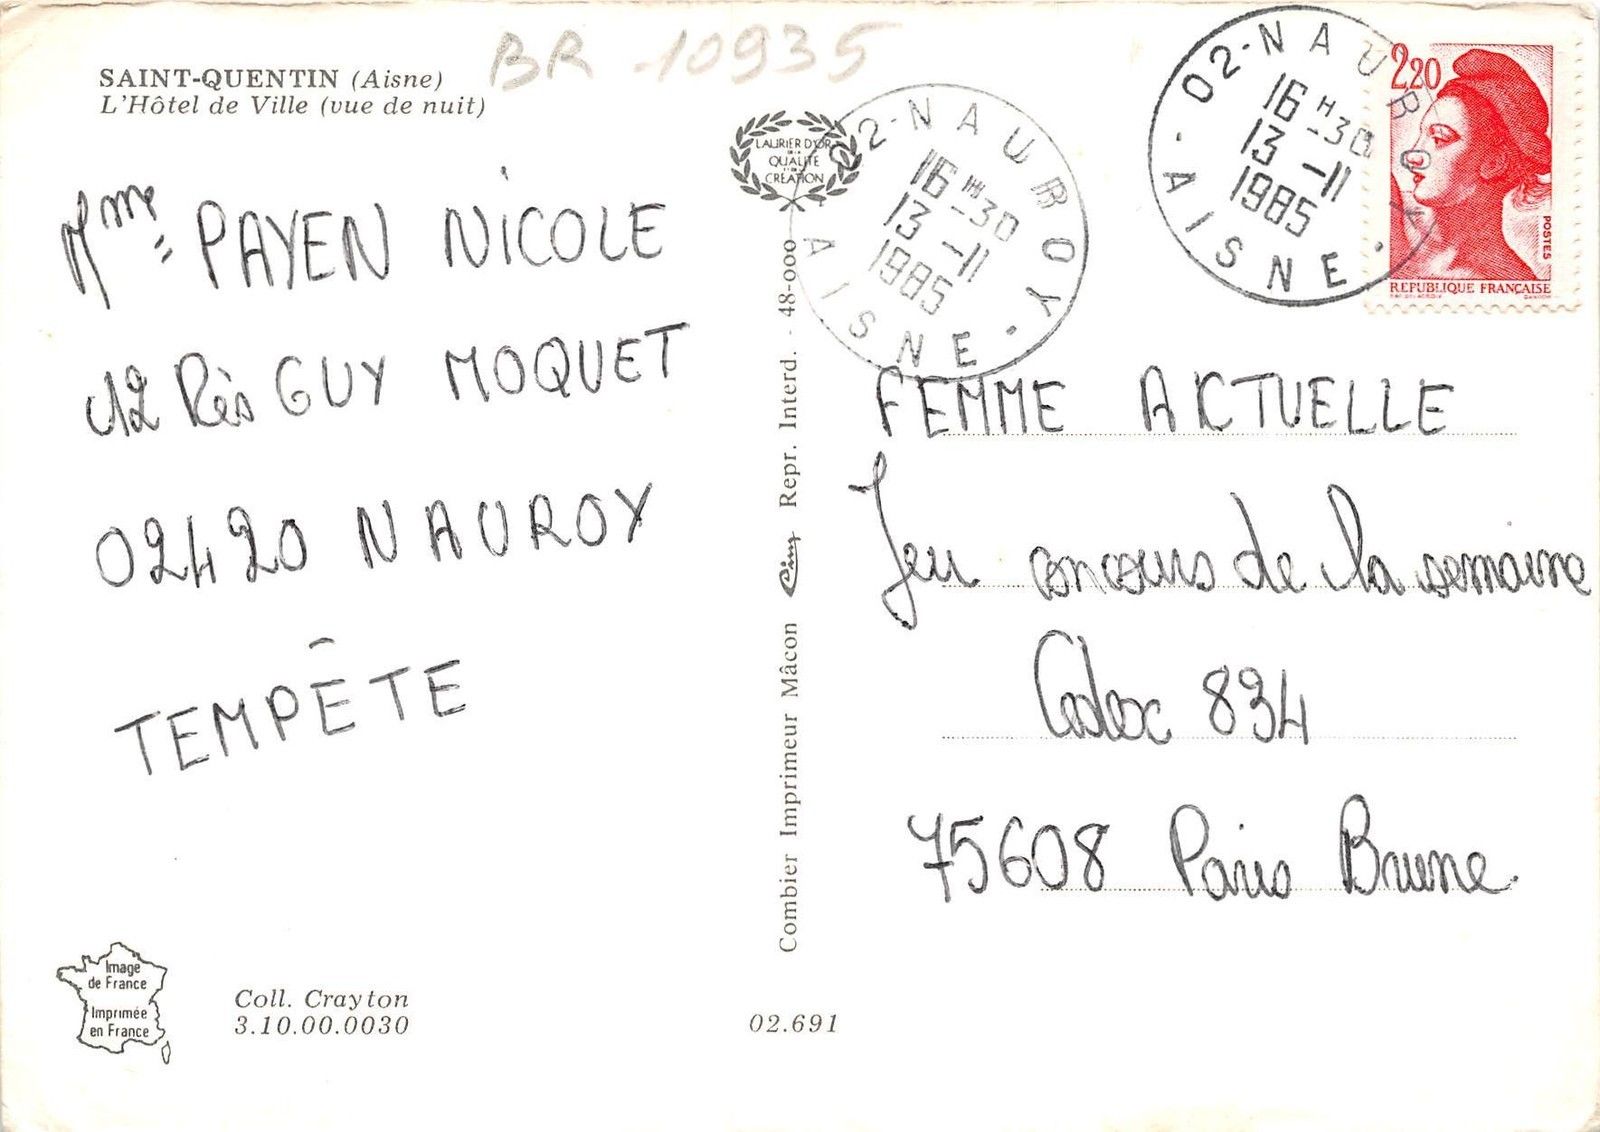 BR-10935
SAINT-QUENTIN (Aisne)
L'Hôtel de Ville (vue de nuit)
Mme PAYEN NICOLE
12 Rés GUY MOQUET
02420 NAUROY
TEMPÊTE
Image
de France
Imprimée
en France
Coll. Crayton
3.10.00.0030
02.691
Combier Imprimeur Mâcon Cim Repr. Interd. - 48-000
LAURIER D'OR
DE LA
QUALITÉ
CRÉATION
02-NAUROY
16H30
13-11
1985
AISNE
02-NAUROY
16H30
13-11
1985
AISNE
2,20
POSTES
REPUBLIQUE FRANÇAISE
FEMME ACTUELLE
Jeu concours de la semaine
Cedex 834
75608 Paris Brune